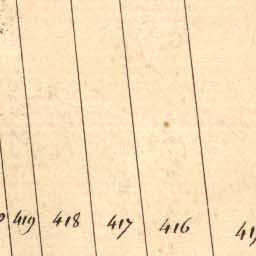 419 418 417 416